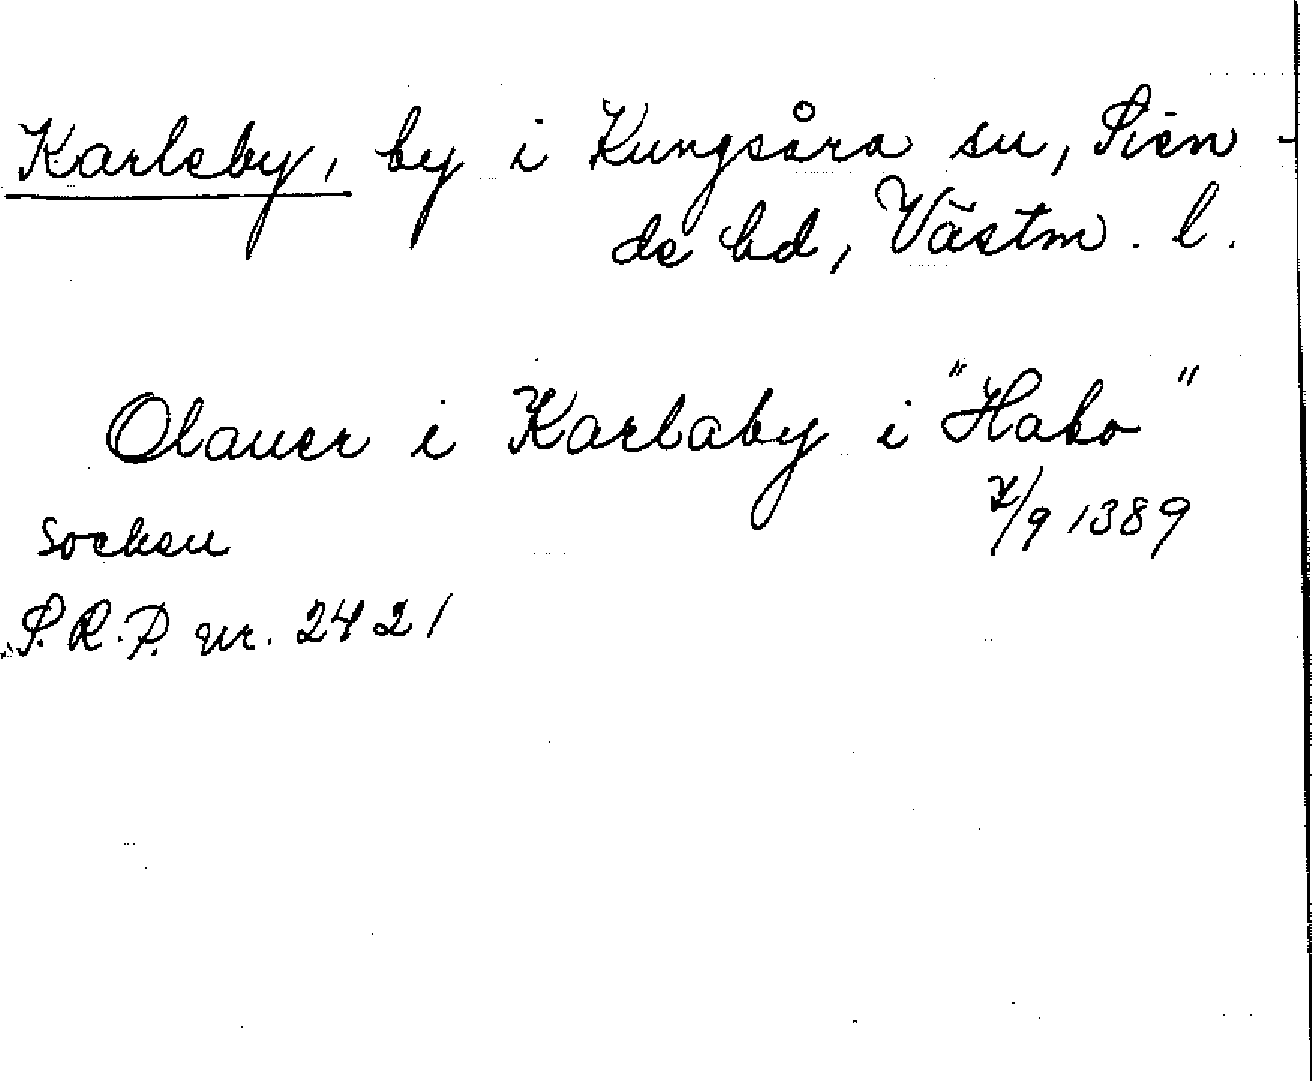 Karleby, by i Kungsåra sn, Sien-
de hd, Västm. l.
Olauer i Karlaby i "Habo"
7/9 1389
socken
S.R.P. nr. 2421